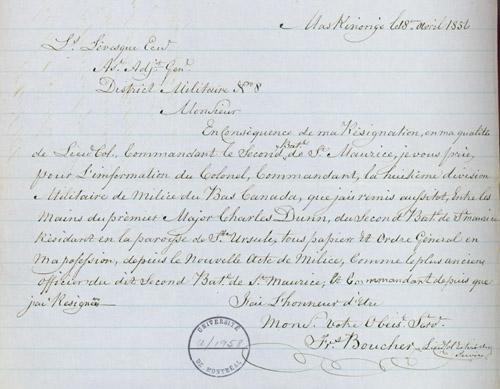 Maskinongé le 18 avril 1856
Ls. Lévesque Ecur
As. Adjt. Genl.
District Militaire No 8
Monsieur
En Conséquence de ma Résignation, en ma qualité
de Lieut Col., Commandant le Second Batn. de St. Maurice, je vous prie,
pour L'information du Colonel, Commandant, la huitième division
Militaire de Milice du Bas Canada, que j'ais remis aussitot, Entre les
Mains du prémier Major Charles Dunn, du Second Batn. de St maurice
Résidant en la paroisse de Ste. Ursule, tous papier Et Ordre Général en
Ma possession, depuis le Nouvelle Acte de Milice, Comme le plus ancien
officier du dit Second Batn. de St. Maurice, & Commandant depuis que
j'ai Resigné
J'ai L'honneur d'Etre
Monsr. Votre Obéist. Servt.
Frs. Boucher Lieut Col
Service
UNIVERSITÉ
a/1958
DE MONTRÉAL